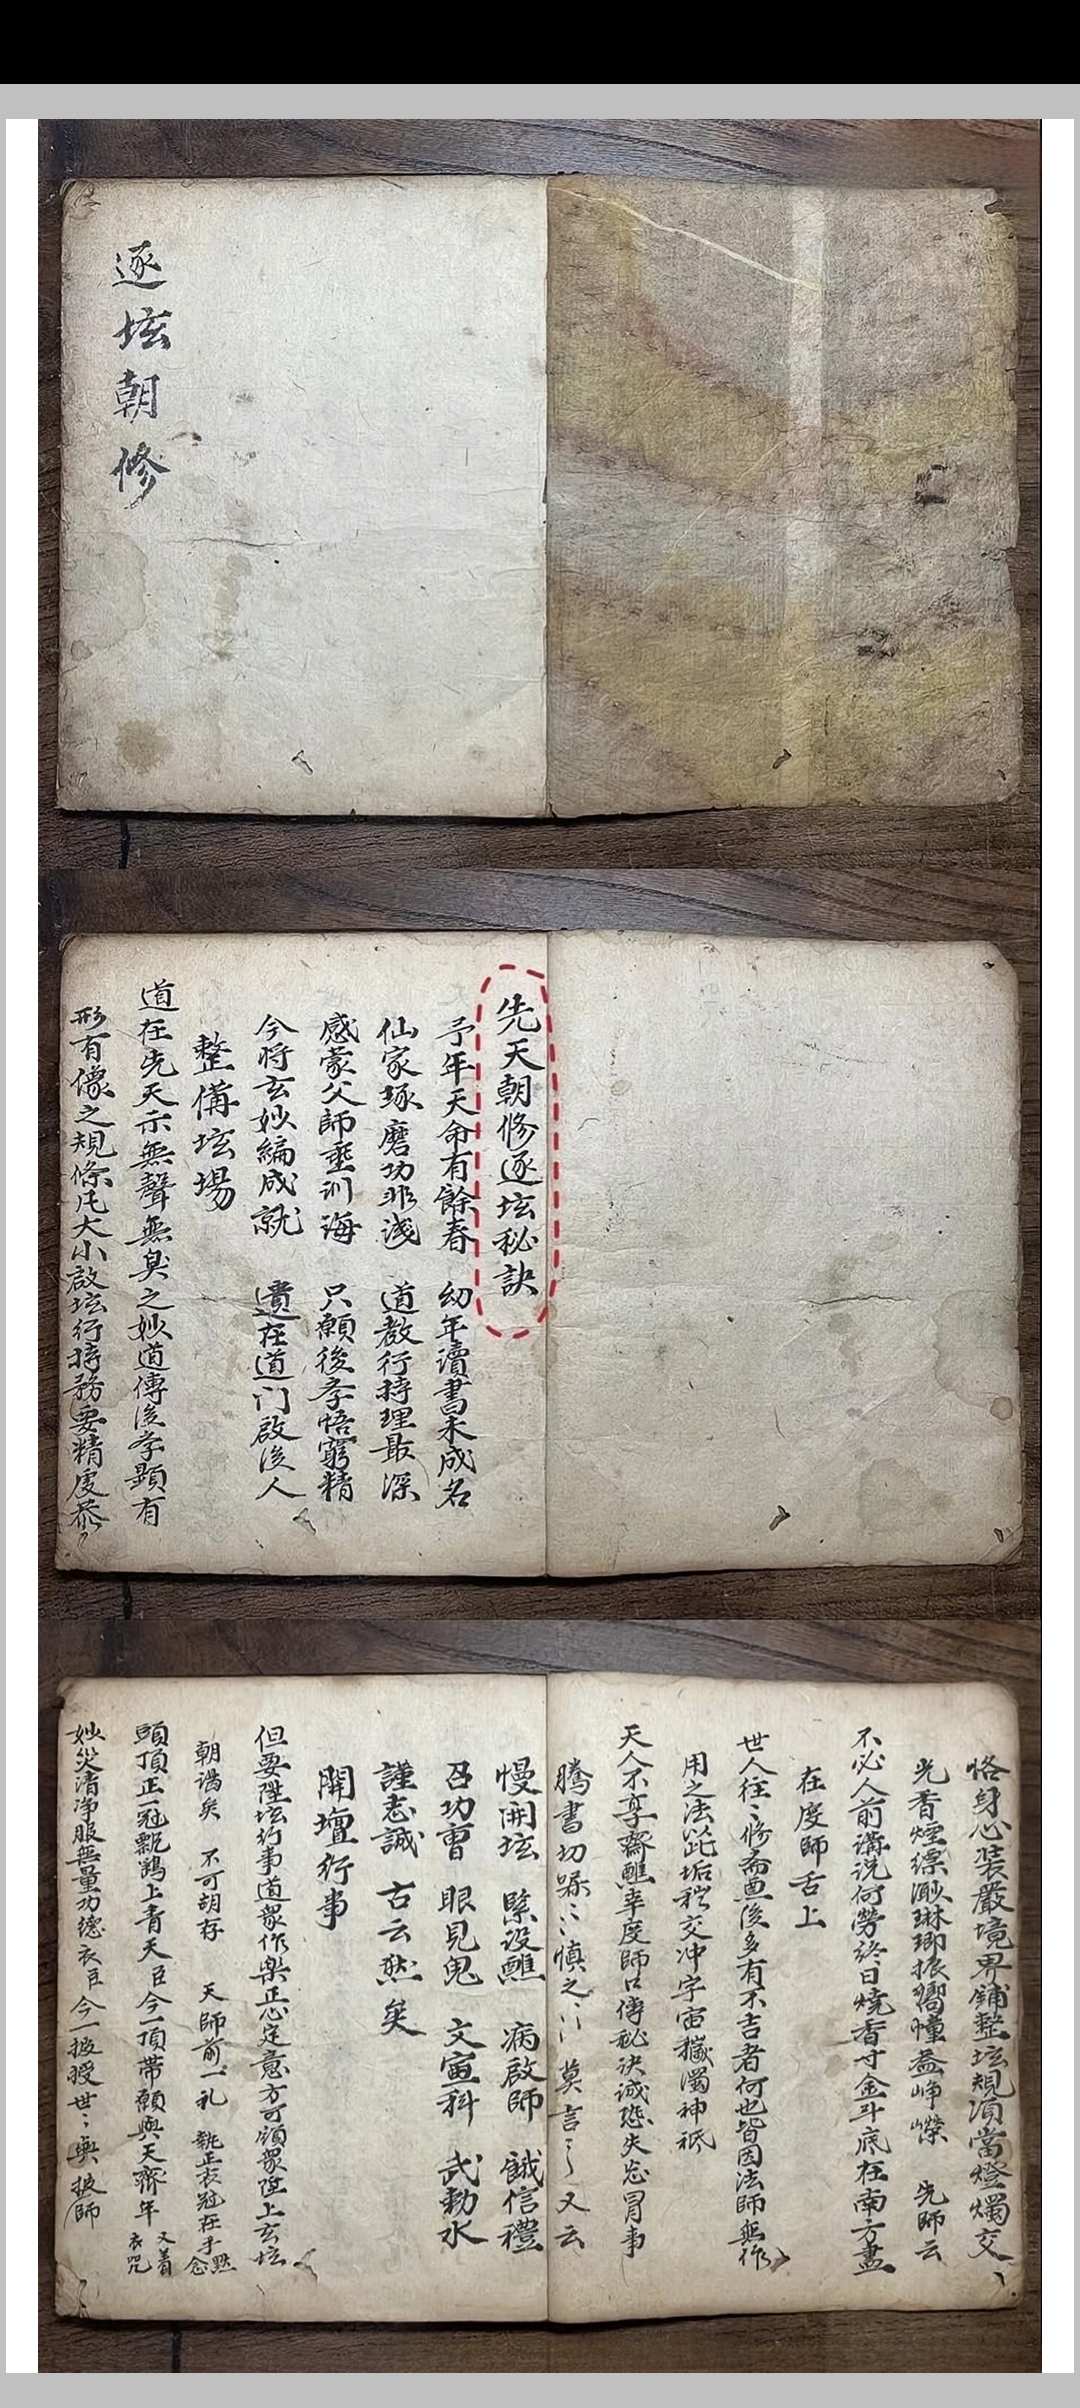 逐坛朝修
先天朝修逐坛秘訣
予年天命有餘春 幼年讀書未成名
仙家琢磨功非淺 道教行持理最深
感蒙父師垂訓誨 只願後孝悟窮精
今将玄妙編成就 遺在道门啟後人
整備坛場
道在先天示無聲無臭之妙道傳後孝顯有
形有像之規條凡大小啟坛行持務要精虔恭
恪身心装嚴境界鋪整坛規湏當燈燭交
光香煙縹渺琳瑯振嚮幢盖峥嶸 先師云
不必人前講说何勞終日燒香寸金斗底在南方盡
在度師舌上
世人往〻修斋之後多有不吉者何也皆因法師無作
用之法以此垢秽交冲宇宙穢濁神祇
天人不享齋醮幸度師口傳秘决诚恐失忘冒事
騰書切噤〻慎之〻 莫言〻 又云
慢開坛 緊设醮 病啟師 餓信禮
召功曹 眼見鬼 文宣科 武勅水
謹志誠 古云然矣
開壇行事
但要陞坛行事道眾作樂正心定意方可領眾陞上玄坛
朝謁矣 不可胡存 天師前一礼 執正衣冠在手默念
頭頂正一冠飄鷂上青天臣今一頂帶願與天齊年 又着衣咒
妙災清净服無量功德衣臣今一披授世〻與披師